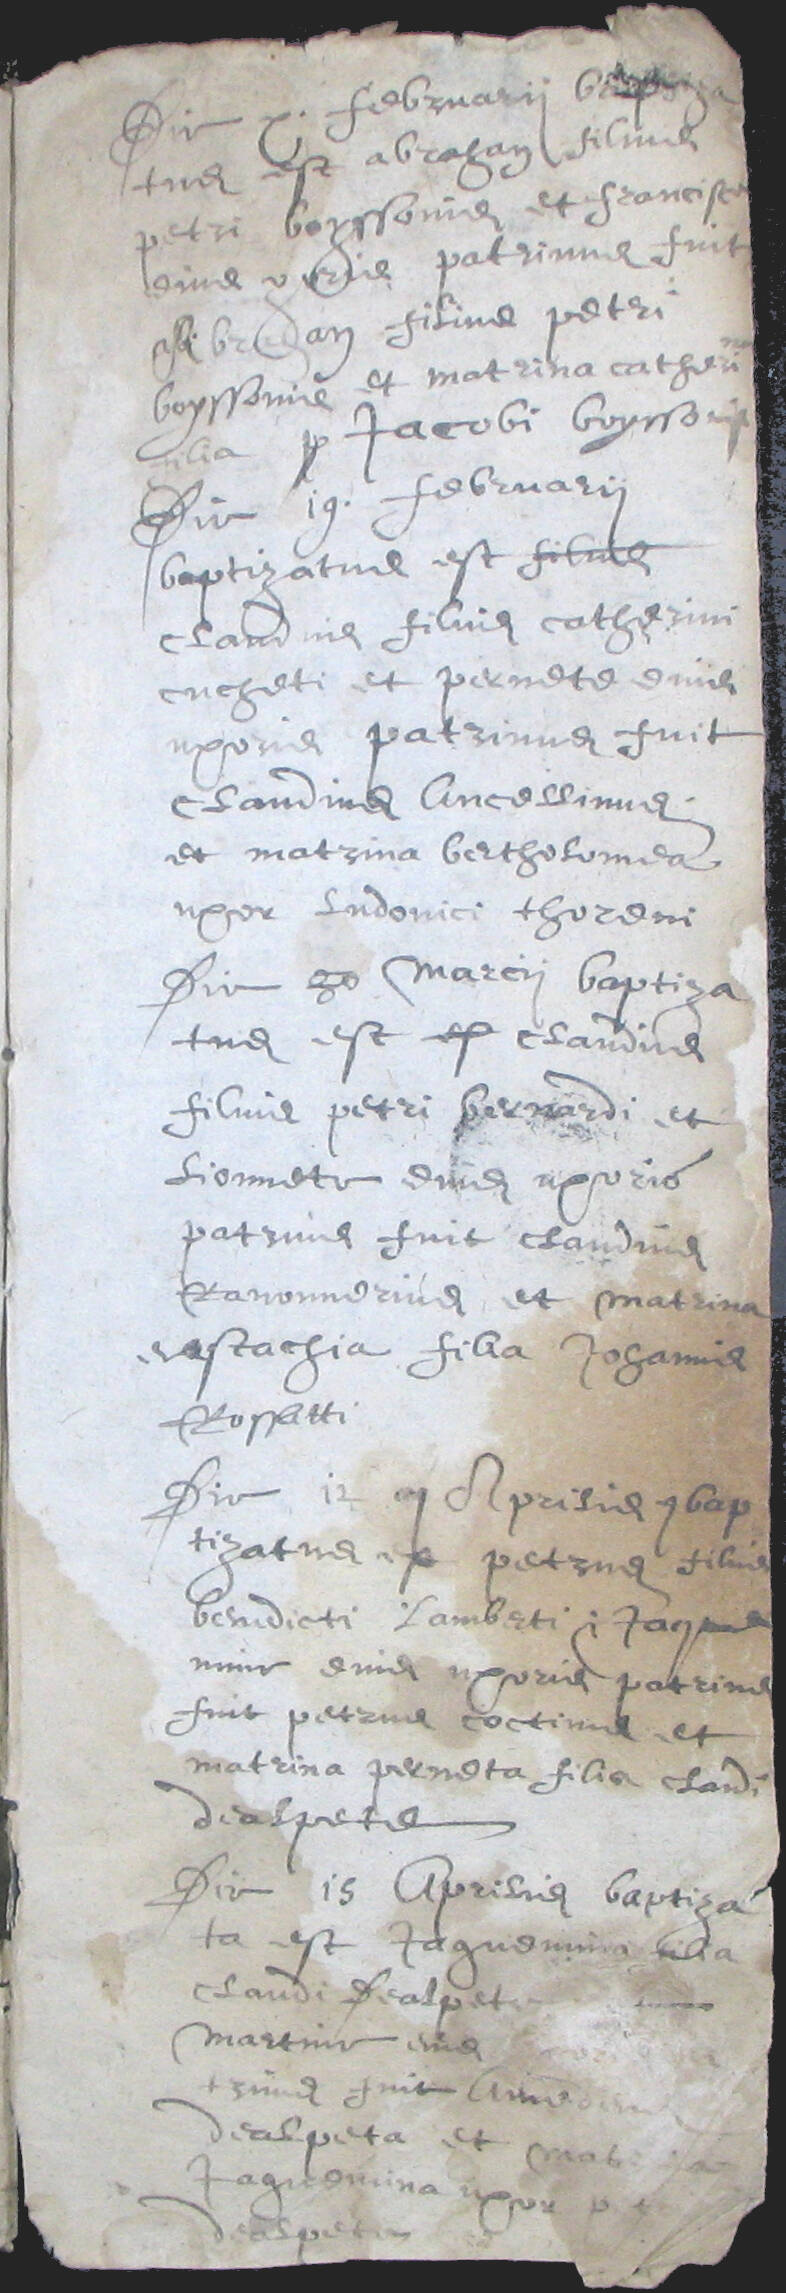 Die x. februarii baptiza
tus est abraham filius
petri boyssonis et francisce
eius uxoris patrinus fuit
abraham filius petri
boyssonis et matrina catheri na
filia p Jacobi boyssonis
Die 19. februarii
baptizatus est filius
claudius filius catherini
cucheti et pernete eius
uxoris patrinus fuit
claudius Ancellinus
et matrina bertholomea
uxor ludovici thoreni
Die 30 Marcii baptiza
tus est claudius
filius petri bernardi et
lionnete eius uxoris
patrinus fuit claudius
Ravonnerius et matrina
eustachia filia Johannis
Rossetti
Die 12 Aprilis bap
tizatus est petrus filius
benedicti lamberti Jaque
mine eius uxoris patrinus
fuit petrus coctinus et
matrina perneta filia claudi
dealpete
Die 15 Aprilis baptiza
ta est Jaquemina filia
claudi Dealpete
Martine eius
trinus fuit
dealpeta et matrina
Jaquemina uxor
dealpete